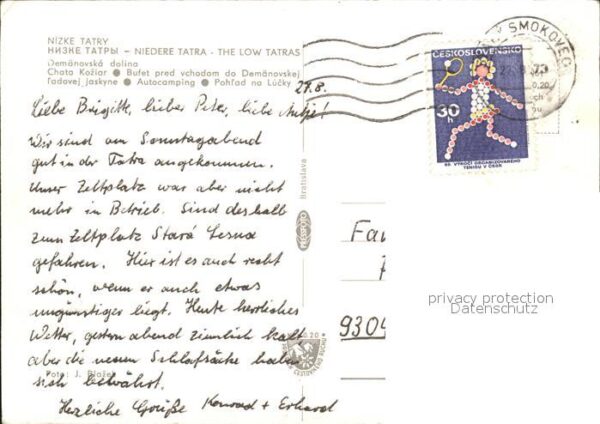 NÍZKE TATRY
НИЗКЕ ТАТРЫ – NIEDERE TATRA - THE LOW TATRAS
Demänovská dolina
Chata Kožiar ● Bufet pred vchodom do Demänovskej
ľadovej jaskyne ● Autocamping ● Pohľad na Lúčky
27.8.
Liebe Brigitte, lieber Peter, liebe Antje!
Wir sind am Sonntagabend
gut in der Tatra angekommen.
Unser Zeltplatz war aber nicht
mehr in Betrieb. Sind deshalb
zum Zeltplatz Stará Lesná
gefahren. Hier ist es auch recht
schön, wenn er auch etwas
ungünstiger liegt. Heute herrliches
Wetter, gestern abend ziemlich kalt
aber die neuen Schlafsäcke haben
sich bewährt.
Foto: J. Blažek
Herzliche Grüße Konrad + Erhard
Bratislava
PRESSFOTO
ČESKOSLOVENSKO
30h
80. VÝROČÍ ORGANIZOVANÉHO
TENISU V ČSSR
SMOKOVEC
Fa
9304
privacy protection
Datenschutz